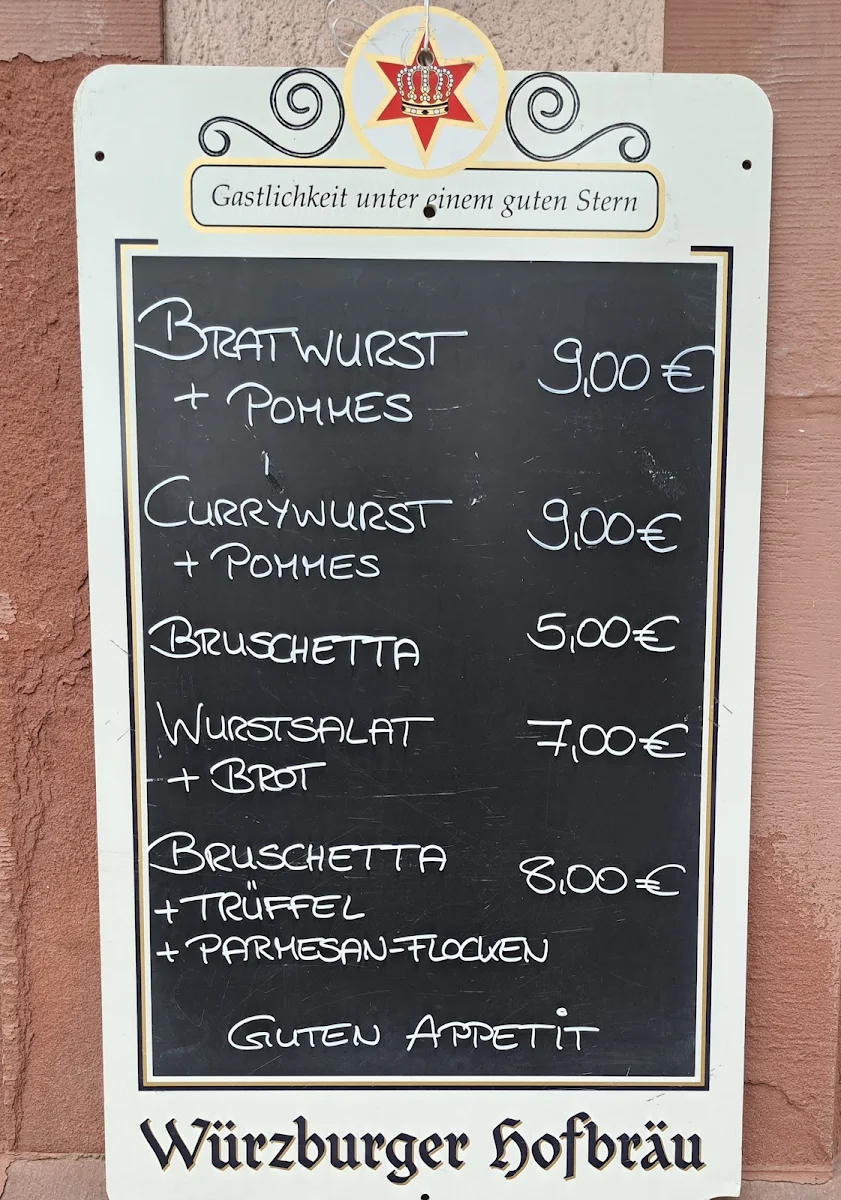 Gastlichkeit unter einem guten Stern
BRATWURST 9,00 €
+ POMMES
CURRYWURST 9,00 €
+ POMMES
BRUSCHETTA 5,00 €
WURSTSALAT 7,00 €
+ BROT
BRUSCHETTA 8,00 €
+ TRÜFFEL
+ PARMESAN-FLOCKEN
GUTEN APPETIT
Würzburger Hofbräu